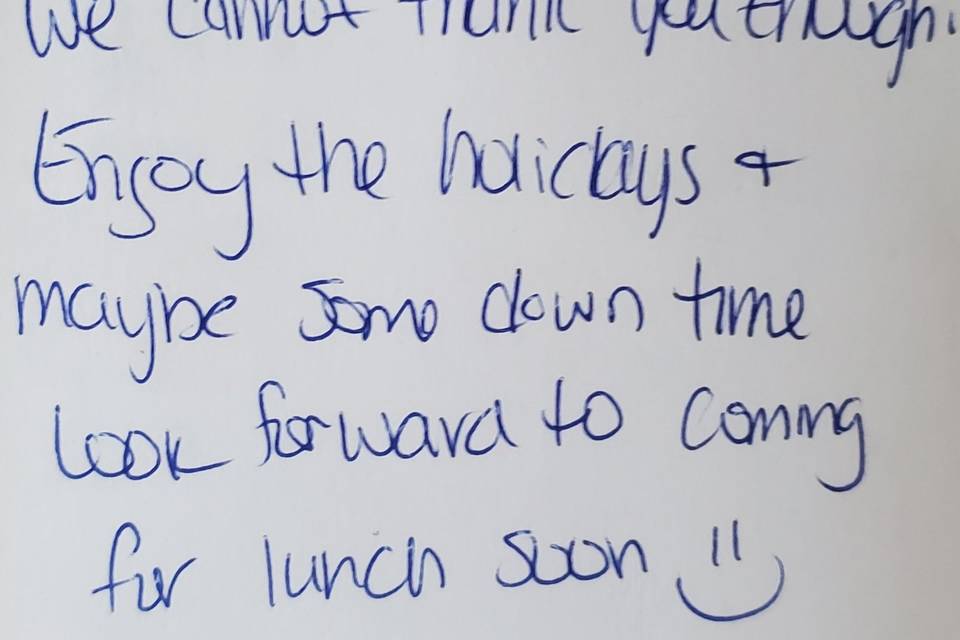 We cannot thank you enough.
Enjoy the holidays +
maybe some down time
Look forward to coming
for lunch soon